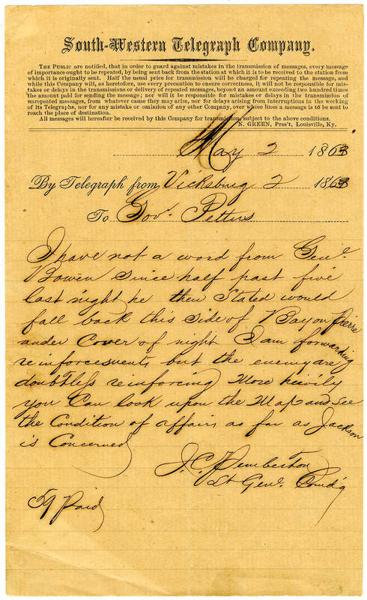 South-Western Telegraph Company.
THE PUBLIC are notified, that in order to guard against mistakes in the transmission of messages, every message
of importance ought to be repeated, by being sent back from the station at which it is to be received to the station from
which it is originally sent. Half the usual price for transmission will be charged for repeating the message, and
while this Company will, as heretofore, use every precaution to ensure correctness, it will not be responsible for mis-
takes or delays in the transmission or delivery of repeated messages, beyond an amount exceeding two hundred times
the amount paid for sending the message; nor will it be responsible for mistakes or delays in the transmission of
unrepeated messages, from whatever cause they may arise, nor for delays arising from interruptions in the working
of its Telegraphs, nor for any mistake or omission of any other Company, over whose lines a message is to be sent to
reach the place of destination.
All messages will hereafter be received by this Company for transmission, subject to the above conditions.
N. GREEN, Pres't, Louisville, Ky.
May 2 1863
By Telegraph from Vicksburg 2 1863
To Gov. Pettus
I have not a word from Genl
Bowen since half past five
last night he then stated would
fall back this side of Bayou Pierre
under Cover of night I am forwarding
reinforcements but the enemy are
doubtless reinforcing More heavily
you Can look upon the Map and see
the Condition of affairs as far as Jackson
is Concerned
J.C. Pemberton
Lt Genl. Comd'g
59 Paid